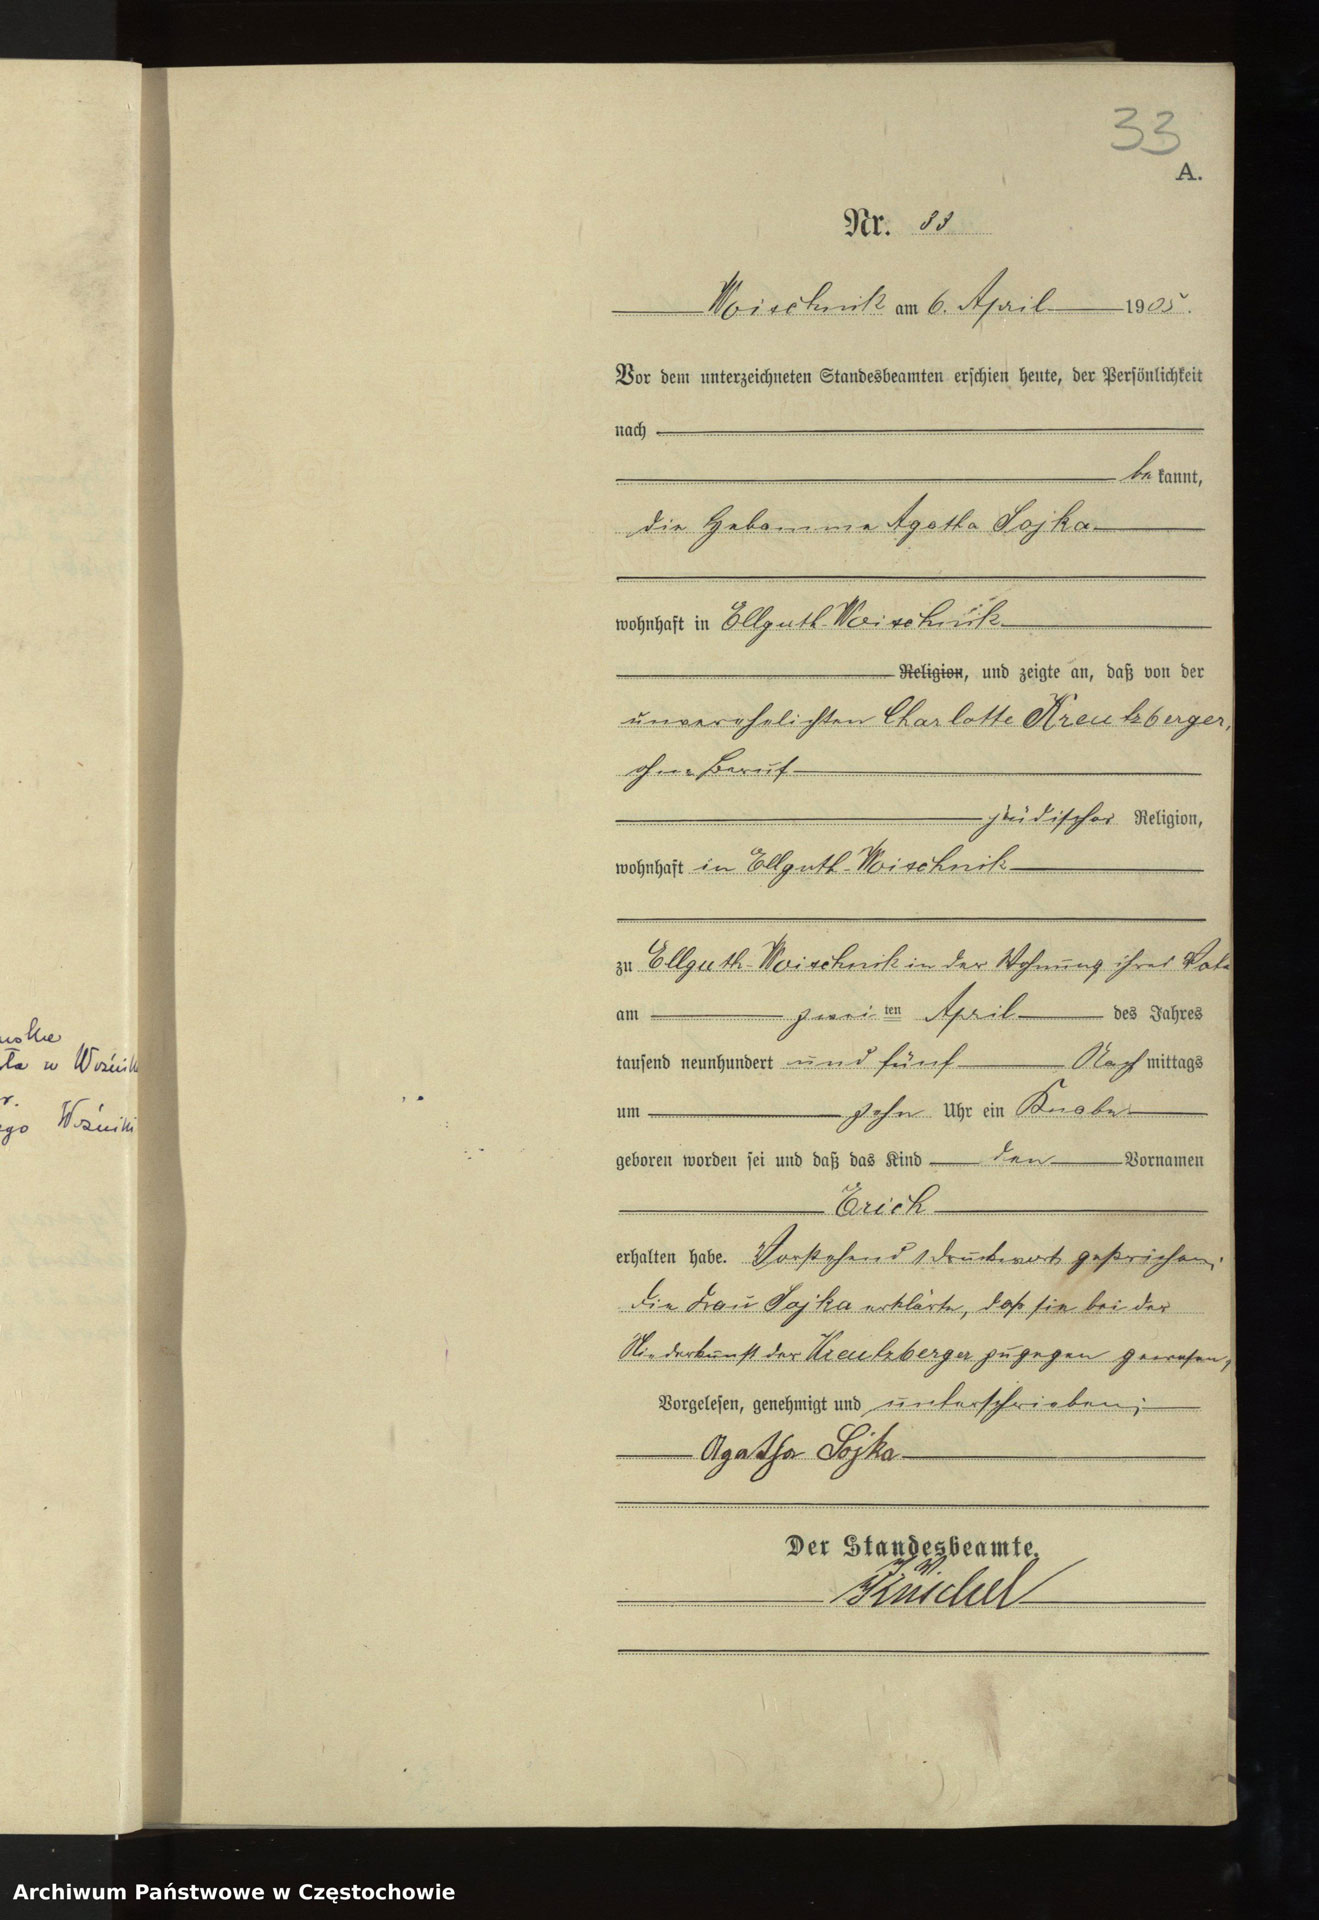 33
A.
Nr. 33
Woischnik am 6. April 1905.
Vor dem unterzeichneten Standesbeamten erschien heute, der Persönlichkeit
nach
bekannt,
die Hebamme Agatha Sojka
wohnhaft in Ellguth-Woischnik
Religion, und zeigte an, daß von der
unverehelichten Charlotte Kreutzberger,
ohne Beruf
jüdischer Religion,
wohnhaft in Ellguth-Woischnik
zu Ellguth-Woischnik in der Wohnung ihres
am zweiten April des Jahres
tausend neunhundert und fünf Nachmittags
um zehn Uhr ein Knabe
geboren worden sei und daß das Kind den Vornamen
Erich
erhalten habe. Vorstehend 1 Druckwort gestrichen;
die Frau Sojka erklärte, daß sie bei der
Niederkunft der Kreutzberger zugegen gewesen,
Vorgelesen, genehmigt und unterschrieben;
Agatha Sojka
Der Standesbeamte.
ła w Woźnik
r.
ego Woźniki
Archiwum Państwowe w Częstochowie